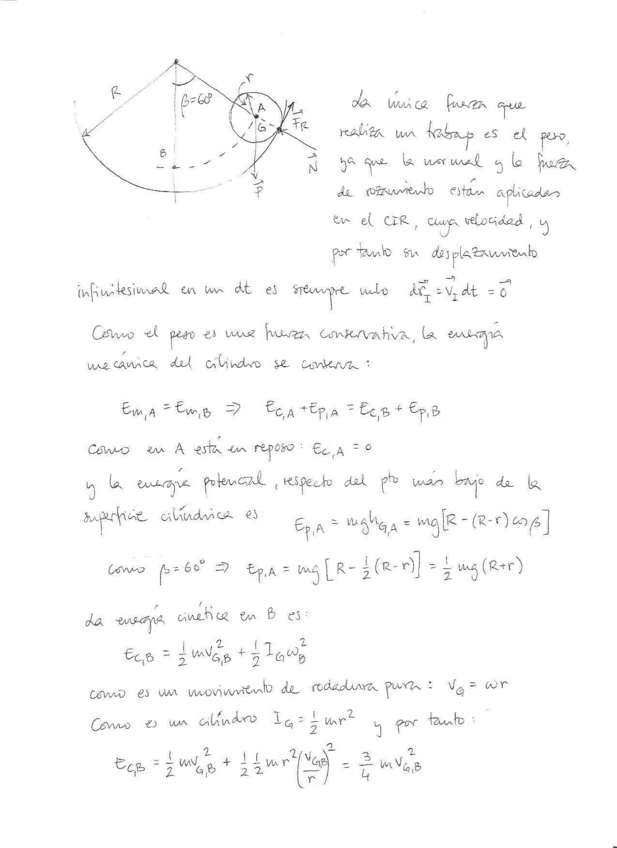 R
β=60°
r
A
G
F⃗R
N⃗
B
P⃗
La única fuerza que
realiza un trabajo es el peso,
ya que la normal y la fuerza
de rozamiento están aplicadas
en el CIR, cuya velocidad, y
por tanto su desplazamiento
infinitesimal en un dt es siempre nulo dr⃗I = v⃗I dt = 0⃗
Como el peso es una fuerza conservativa, la energía
mecánica del cilindro se conserva:
Em,A = Em,B ⇒ Ec,A + Ep,A = Ec,B + Ep,B
como en A está en reposo: Ec,A = 0
y la energía potencial, respecto del pto más bajo de la
superficie cilíndrica es Ep,A = mghG,A = mg[R-(R-r)cosβ]
como β=60° ⇒ Ep,A = mg[R-1/2(R-r)] = 1/2 mg(R+r)
La energía cinética en B es:
Ec,B = 1/2 mv²G,B + 1/2 IG ω²B
como es un movimiento de rodadura pura: vG = ωr
Como es un cilindro IG = 1/2 mr² y por tanto:
Ec,B = 1/2 mv²G,B + 1/2 1/2 mr²(vG,B/r)² = 3/4 mv²G,B